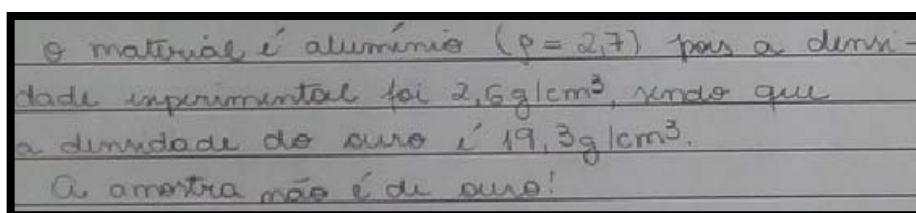 O material é alumínio (ρ = 2,7) pois a densi-
dade experimental foi 2,6g/cm³, sendo que
a densidade do ouro é 19,3g/cm³.
A amostra não é de ouro!